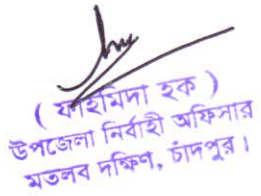 ( ফাহমিদা হক )
উপজেলা নির্বাহী অফিসার
মতলব দক্ষিণ, চাঁদপুর।